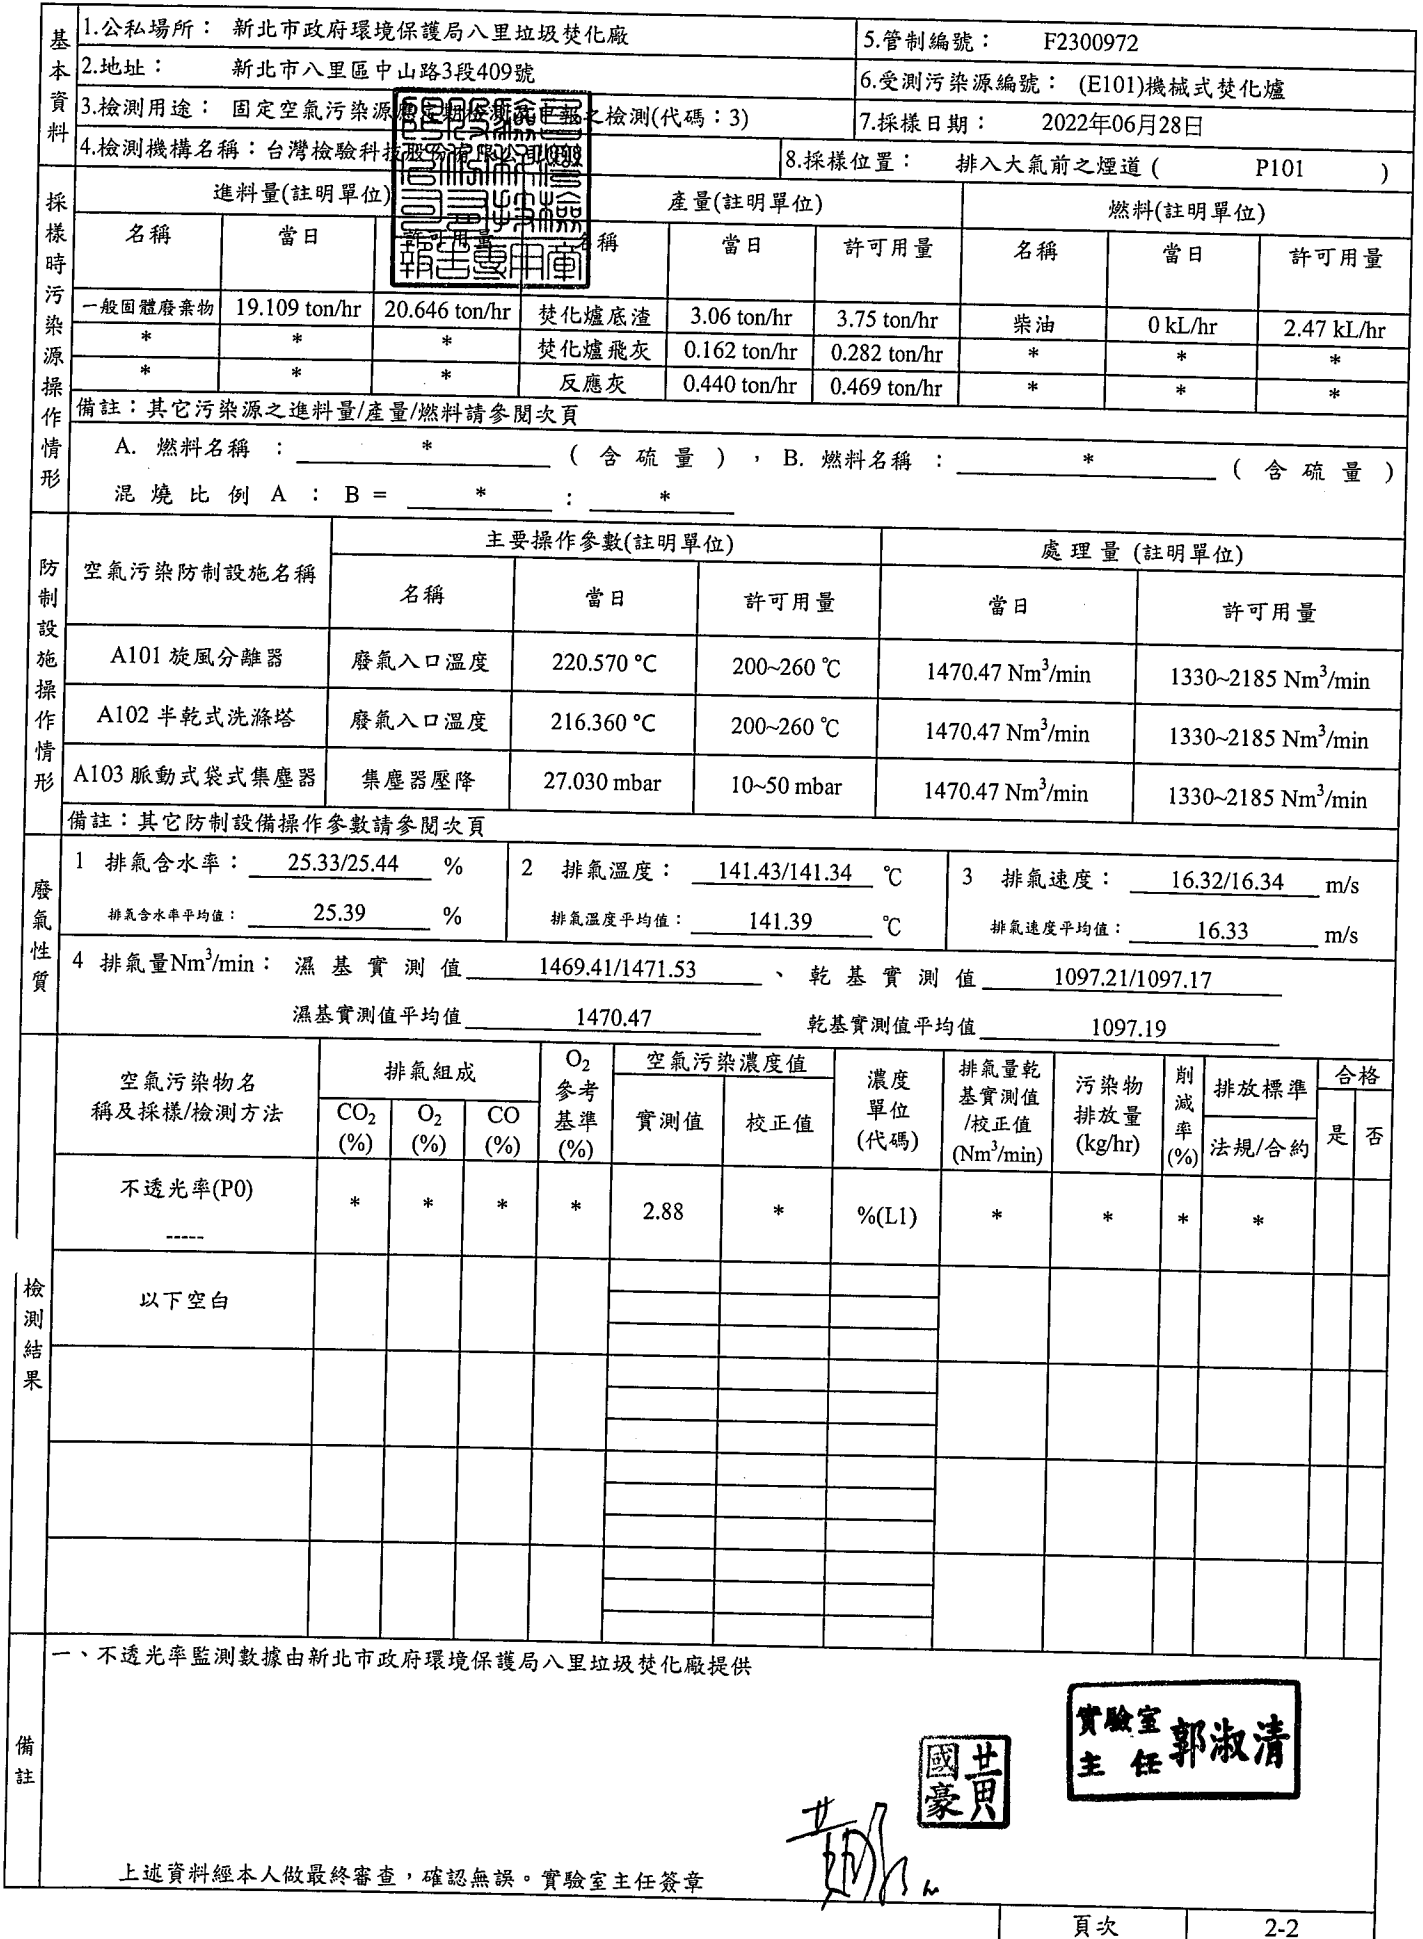 基本資料
1.公私場所： 新北市政府環境保護局八里垃圾焚化廠 5.管制編號： F2300972
2.地址： 新北市八里區中山路3段409號 6.受測污染源編號： (E101)機械式焚化爐
3.檢測用途： 固定空氣污染源應定期檢測及申報之檢測(代碼：3) 7.採樣日期： 2022年06月28日
4.檢測機構名稱：台灣檢驗科技股份有限公司 8.採樣位置： 排入大氣前之煙道 ( P101 )
採樣時污染源操作情形
進料量(註明單位) 產量(註明單位) 燃料(註明單位)
名稱 當日 許可用量 名稱 當日 許可用量 名稱 當日 許可用量
一般固體廢棄物 19.109 ton/hr 20.646 ton/hr 焚化爐底渣 3.06 ton/hr 3.75 ton/hr 柴油 0 kL/hr 2.47 kL/hr
* * * 焚化爐飛灰 0.162 ton/hr 0.282 ton/hr * * *
* * * 反應灰 0.440 ton/hr 0.469 ton/hr * * *
備註：其它污染源之進料量/產量/燃料請參閱次頁
A. 燃料名稱 ： * ( 含 硫 量 ) ， B. 燃料名稱 ： * ( 含 硫 量 )
混 燒 比 例 A ： B = * ： *
防制設施操作情形
空氣污染防制設施名稱 主要操作參數(註明單位) 處理量 (註明單位)
名稱 當日 許可用量 當日 許可用量
A101 旋風分離器 廢氣入口溫度 220.570 ℃ 200~260 ℃ 1470.47 Nm³/min 1330~2185 Nm³/min
A102 半乾式洗滌塔 廢氣入口溫度 216.360 ℃ 200~260 ℃ 1470.47 Nm³/min 1330~2185 Nm³/min
A103 脈動式袋式集塵器 集塵器壓降 27.030 mbar 10~50 mbar 1470.47 Nm³/min 1330~2185 Nm³/min
備註：其它防制設備操作參數請參閱次頁
廢氣性質
1 排氣含水率： 25.33/25.44 % 2 排氣溫度： 141.43/141.34 ℃ 3 排氣速度： 16.32/16.34 m/s
排氣含水率平均值： 25.39 % 排氣溫度平均值： 141.39 ℃ 排氣速度平均值： 16.33 m/s
4 排氣量Nm³/min： 濕 基 實 測 值 1469.41/1471.53 、 乾 基 實 測 值 1097.21/1097.17
濕基實測值平均值 1470.47 乾基實測值平均值 1097.19
檢測結果
空氣污染物名稱及採樣/檢測方法 排氣組成 O₂參考基準(%) 空氣污染濃度值 濃度單位(代碼) 排氣量乾基實測值/校正值(Nm³/min) 污染物排放量(kg/hr) 削減率(%) 排放標準 合格
CO₂(%) O₂(%) CO(%) 實測值 校正值 法規/合約 是 否
不透光率(P0) * * * * 2.88 * %(L1) * * * *
-----
以下空白
備註
一、不透光率監測數據由新北市政府環境保護局八里垃圾焚化廠提供
實驗室主任 郭淑清
黃國豪
上述資料經本人做最終審查，確認無誤。實驗室主任簽章
頁次 2-2